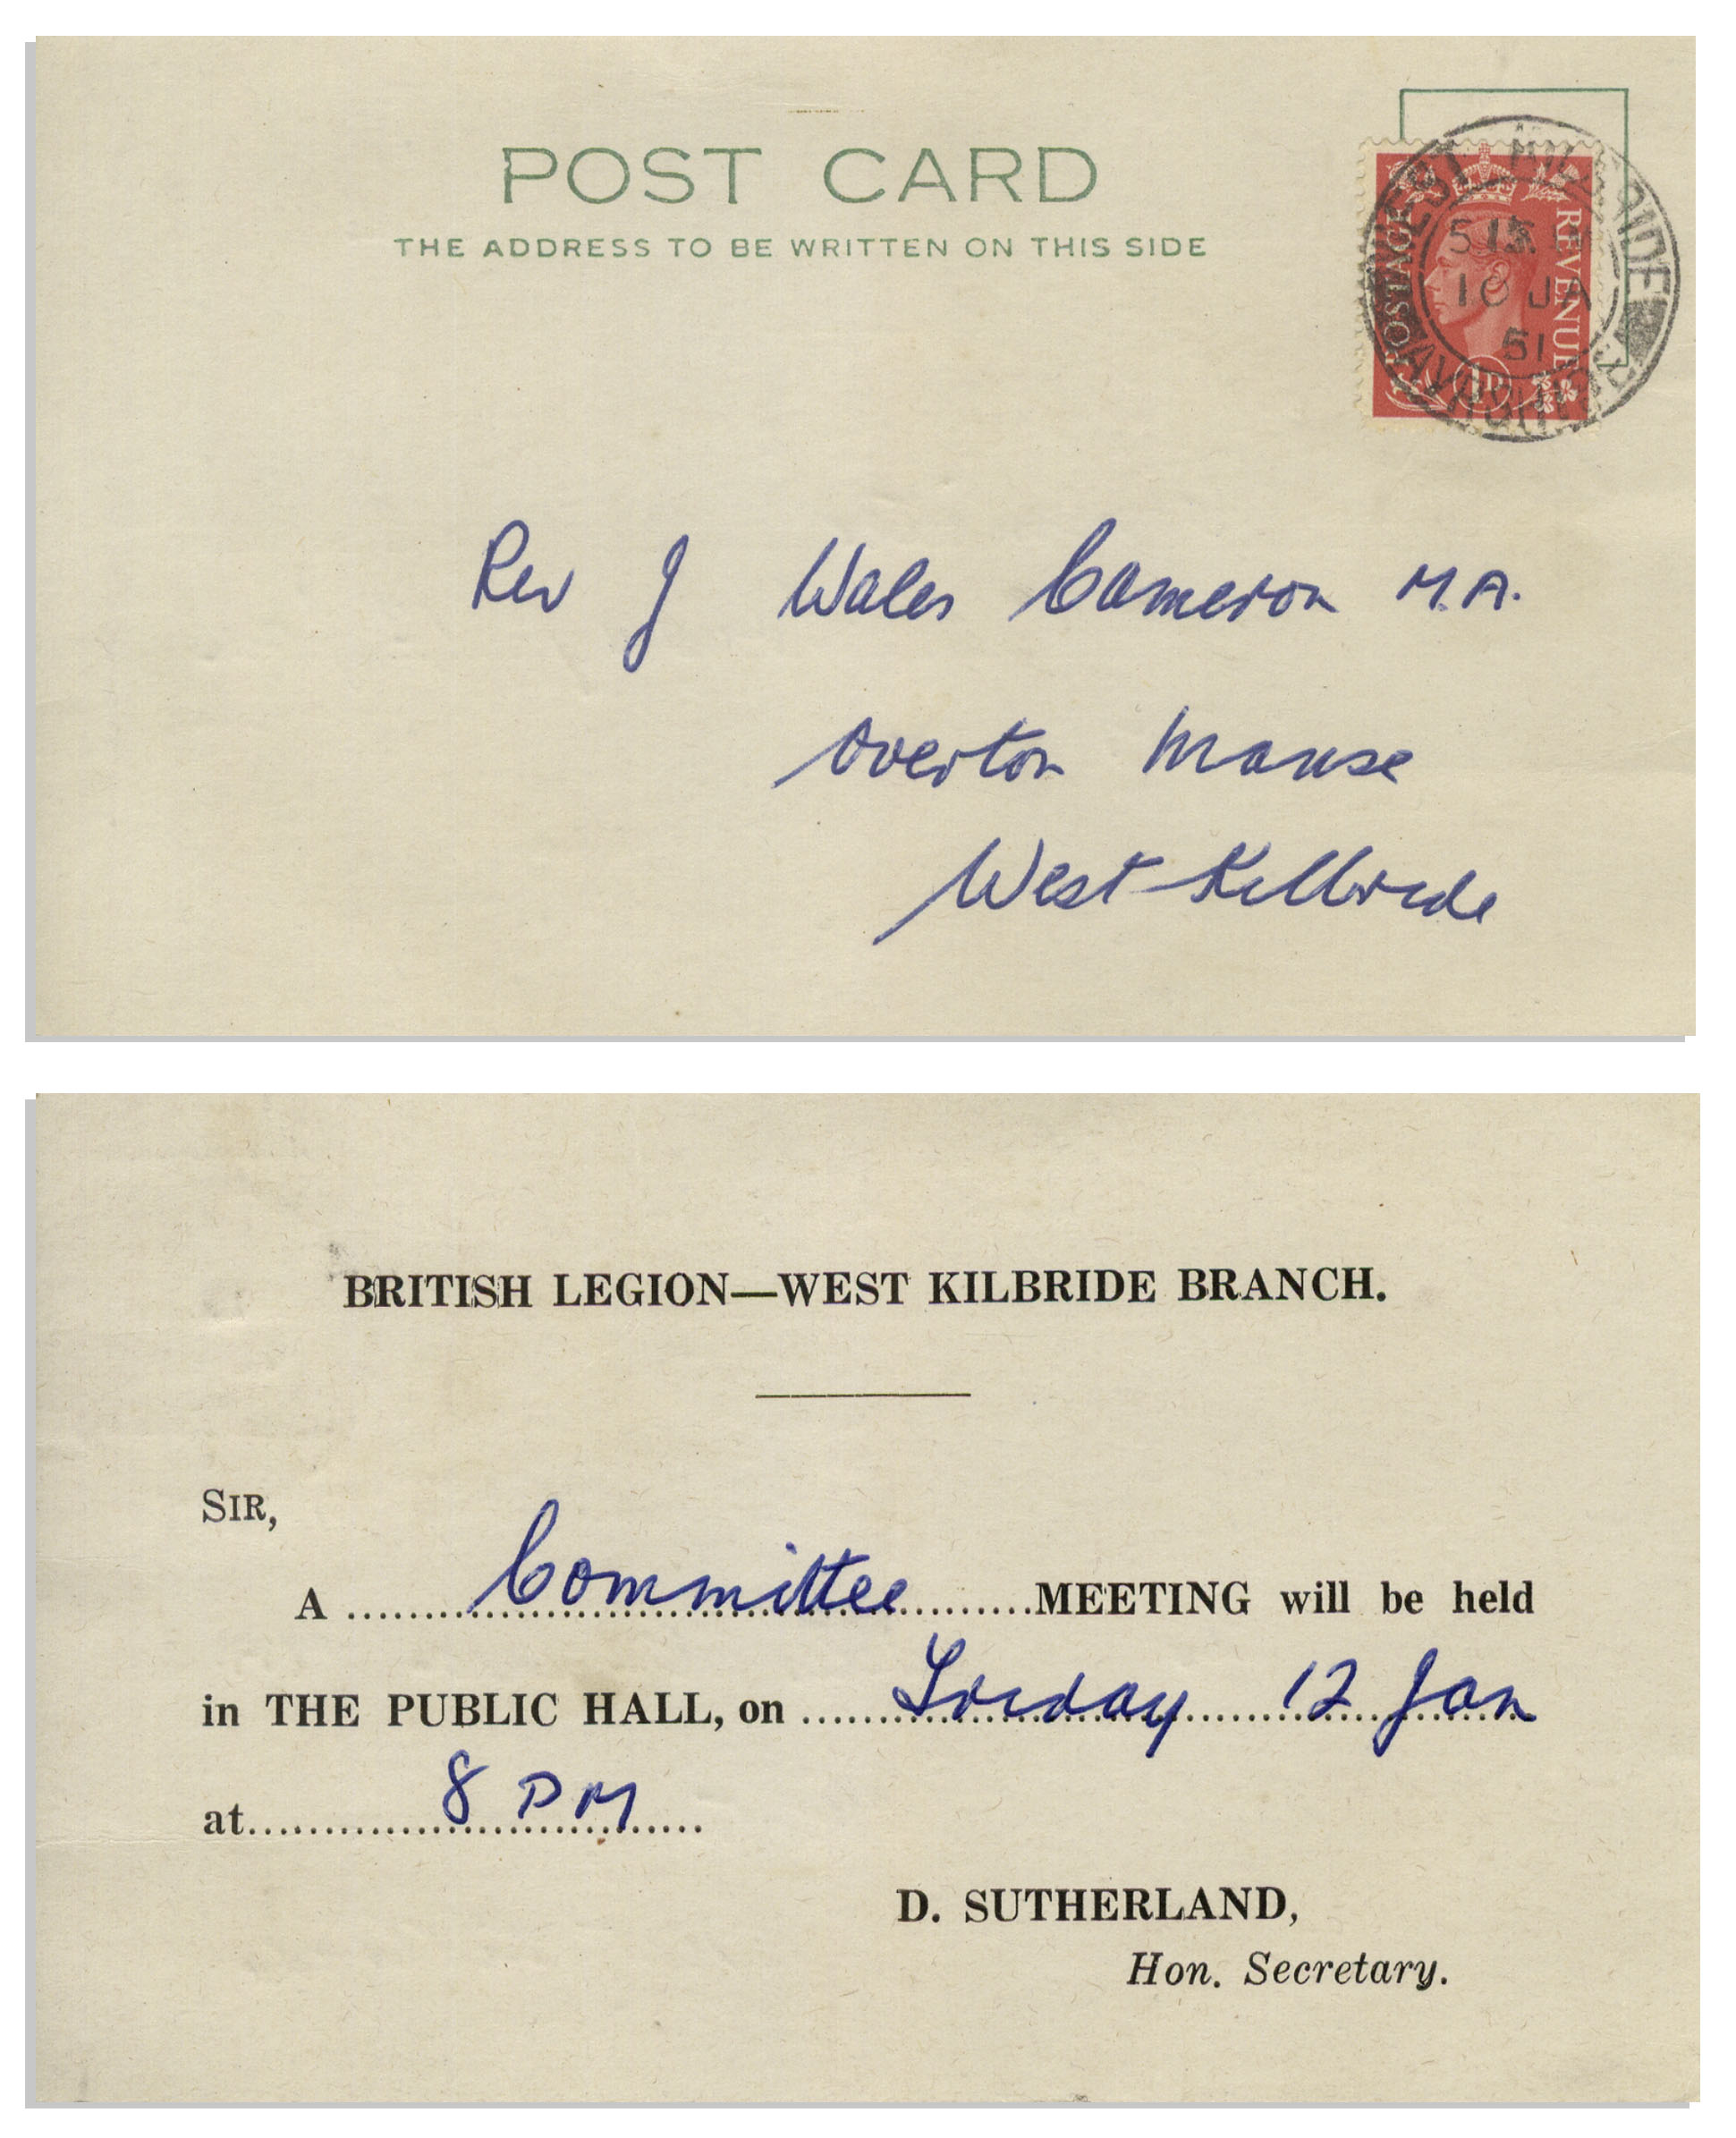 POST CARD
THE ADDRESS TO BE WRITTEN ON THIS SIDE
POSTAGE
REVENUE
1D
WEST KILBRIDE
10 JA
51
AYRSHIRE
Rev J Wales Cameron M.A.
Overton Manse
West Kilbride
BRITISH LEGION—WEST KILBRIDE BRANCH.
SIR,
A Committee MEETING will be held
in THE PUBLIC HALL, on Friday 12 Jan
at 8 PM
D. SUTHERLAND,
Hon. Secretary.